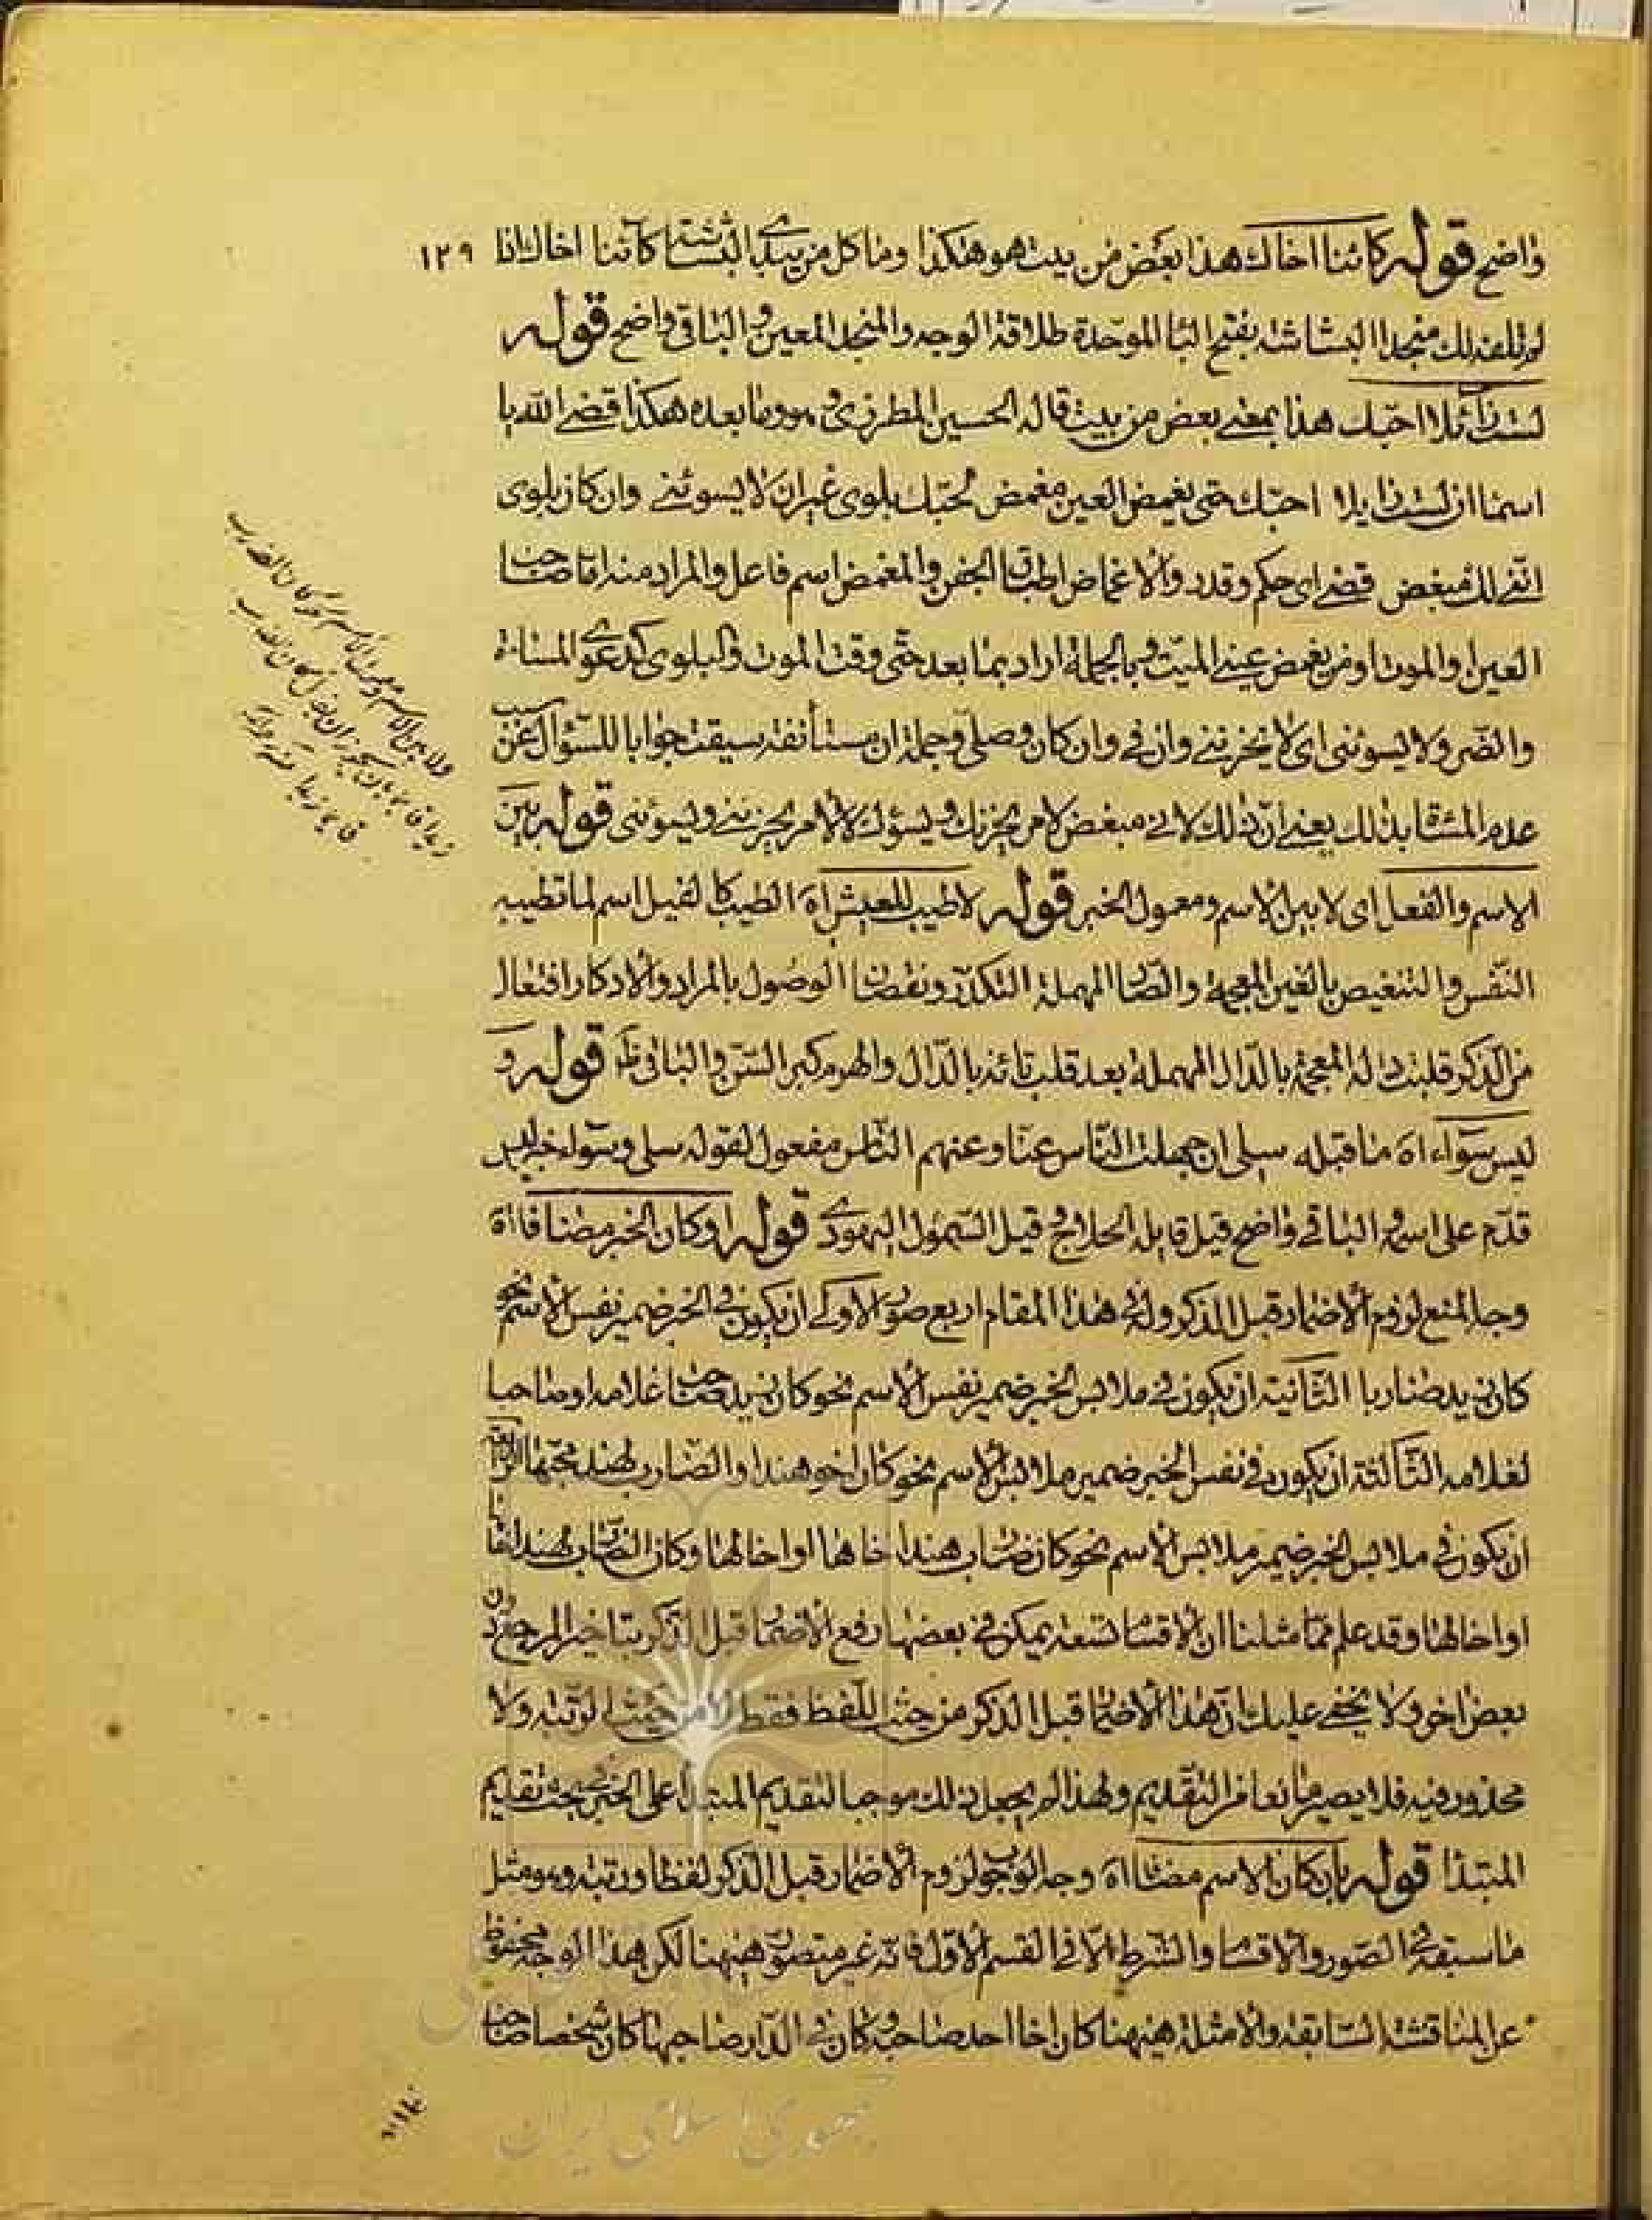 واضح قوله كائنا اخاك هذا بعض من بيت هو هكذا وما كل من يبدي البشاشة كائنا اخاك اذا
۱۲۹
لم تلفه لك منجدا البشاشة بفتح البا الموحدة طلاقة الوجه والمنجد المعين والباقي واضح قوله
لست زائلا احبك هذا بمعنى بعض من بيت قاله الحسين المطرزي وهو وما بعده هكذا قضى الله يا
اسما ان لست زايلا احبك حتى يغمض العين مغمض لحبك بلوى غير ان لا يسوئني وان كان بلوى
انني لك مبغض قضى اى حكم وقدر والاغماض اطباق الجفن والمغمض اسم فاعل والمراد منه اما صاحب
العين او الموت او من يغمض عيني الميت وبالجملة اراد بما بعد حتى وقت الموت والبلوى كدعوى المساءة
والضر ولا يسوئنى اى لا يحزننى وان في وان كان وصلي وجملة ان مستأنفة سيقت جوابا للسؤال عن سبب
عدم المشقة بذلك يعنى ان ذلك لانى مبغض لامر يحزنك ويسؤك لا لامر يحزننى ويسوئنى قوله بين
الاسم والفعل اى لا بين الاسم ومعمول الخبر قوله لا طيب للعيش اه الطيب كالفيل اسم لما تطيب به
النفس والتنغيص بالغين المعجمة والصا المهملة التكدر ونقصان الوصول بالمراد والادكار افتعال
من الذكر قلبت ذاله المعجمة بالدال المهملة بعد قلب تائه بالدال والهرم كبر السن والباقي ظ قوله و
ليس سواء اه ما قبله سلي ان جهلت الناس عنا وعنهم الناس مفعول لقوله سلي وسواء خبر ليس
قدم على اسمه والباقي واضح قيل قايله الحلاج وقيل السموئل اليهودي قوله او كان الخبر مضافا اه
وجه المنع لزوم الاضمار قبل الذكر وله في هذا المقام اربع صور الاولى ان يكون في الخبر ضمير نفس الاسم نحو
كان زيد ضاربا الثانية ان يكون في ملابس الخبر ضمير نفس الاسم نحو كان زيد صاحب غلامه او صاحبا
لغلامه الثالثة ان يكون في نفس الخبر ضمير ملابس الاسم نحو كان اخو هند او الضارب لهند محبها الرابعة
ان يكون في ملابس الخبر ضمير ملابس الاسم نحو كان ضارب هند اخاها او اخا لها وكان الضارب لهند اخاها
او اخا لها وقد علم مما مثلنا ان الاقسام تسعة يمكن في بعضها رفع الاضمار قبل الذكر بتاخير المرجع دون
بعض اخر ولا يخفى عليك ان هذا الاضمار قبل الذكر من حيث اللفظ فقط لا من حيث الرتبة ولا
محذور فيه فلا يصير مانعا من التقديم ولهذا لم يجعل ذلك موجبا لتقديم المبتدا على الخبر في بحث تقديم
المبتدا قوله بان كان الاسم مضافا اه وجه الوجوب لزوم الاضمار قبل الذكر لفظا ورتبة وهو مثل
ما سبقه في الصور والاقسام والشرط الا في القسم الاول فانه غير متصور هيهنا لكن هذا الوجه محفوظ
عن المناقشة السابقة والامثلة هيهنا كان اخا احد صاحبه وكان في الدار صاحبها كان شخصا صاحب